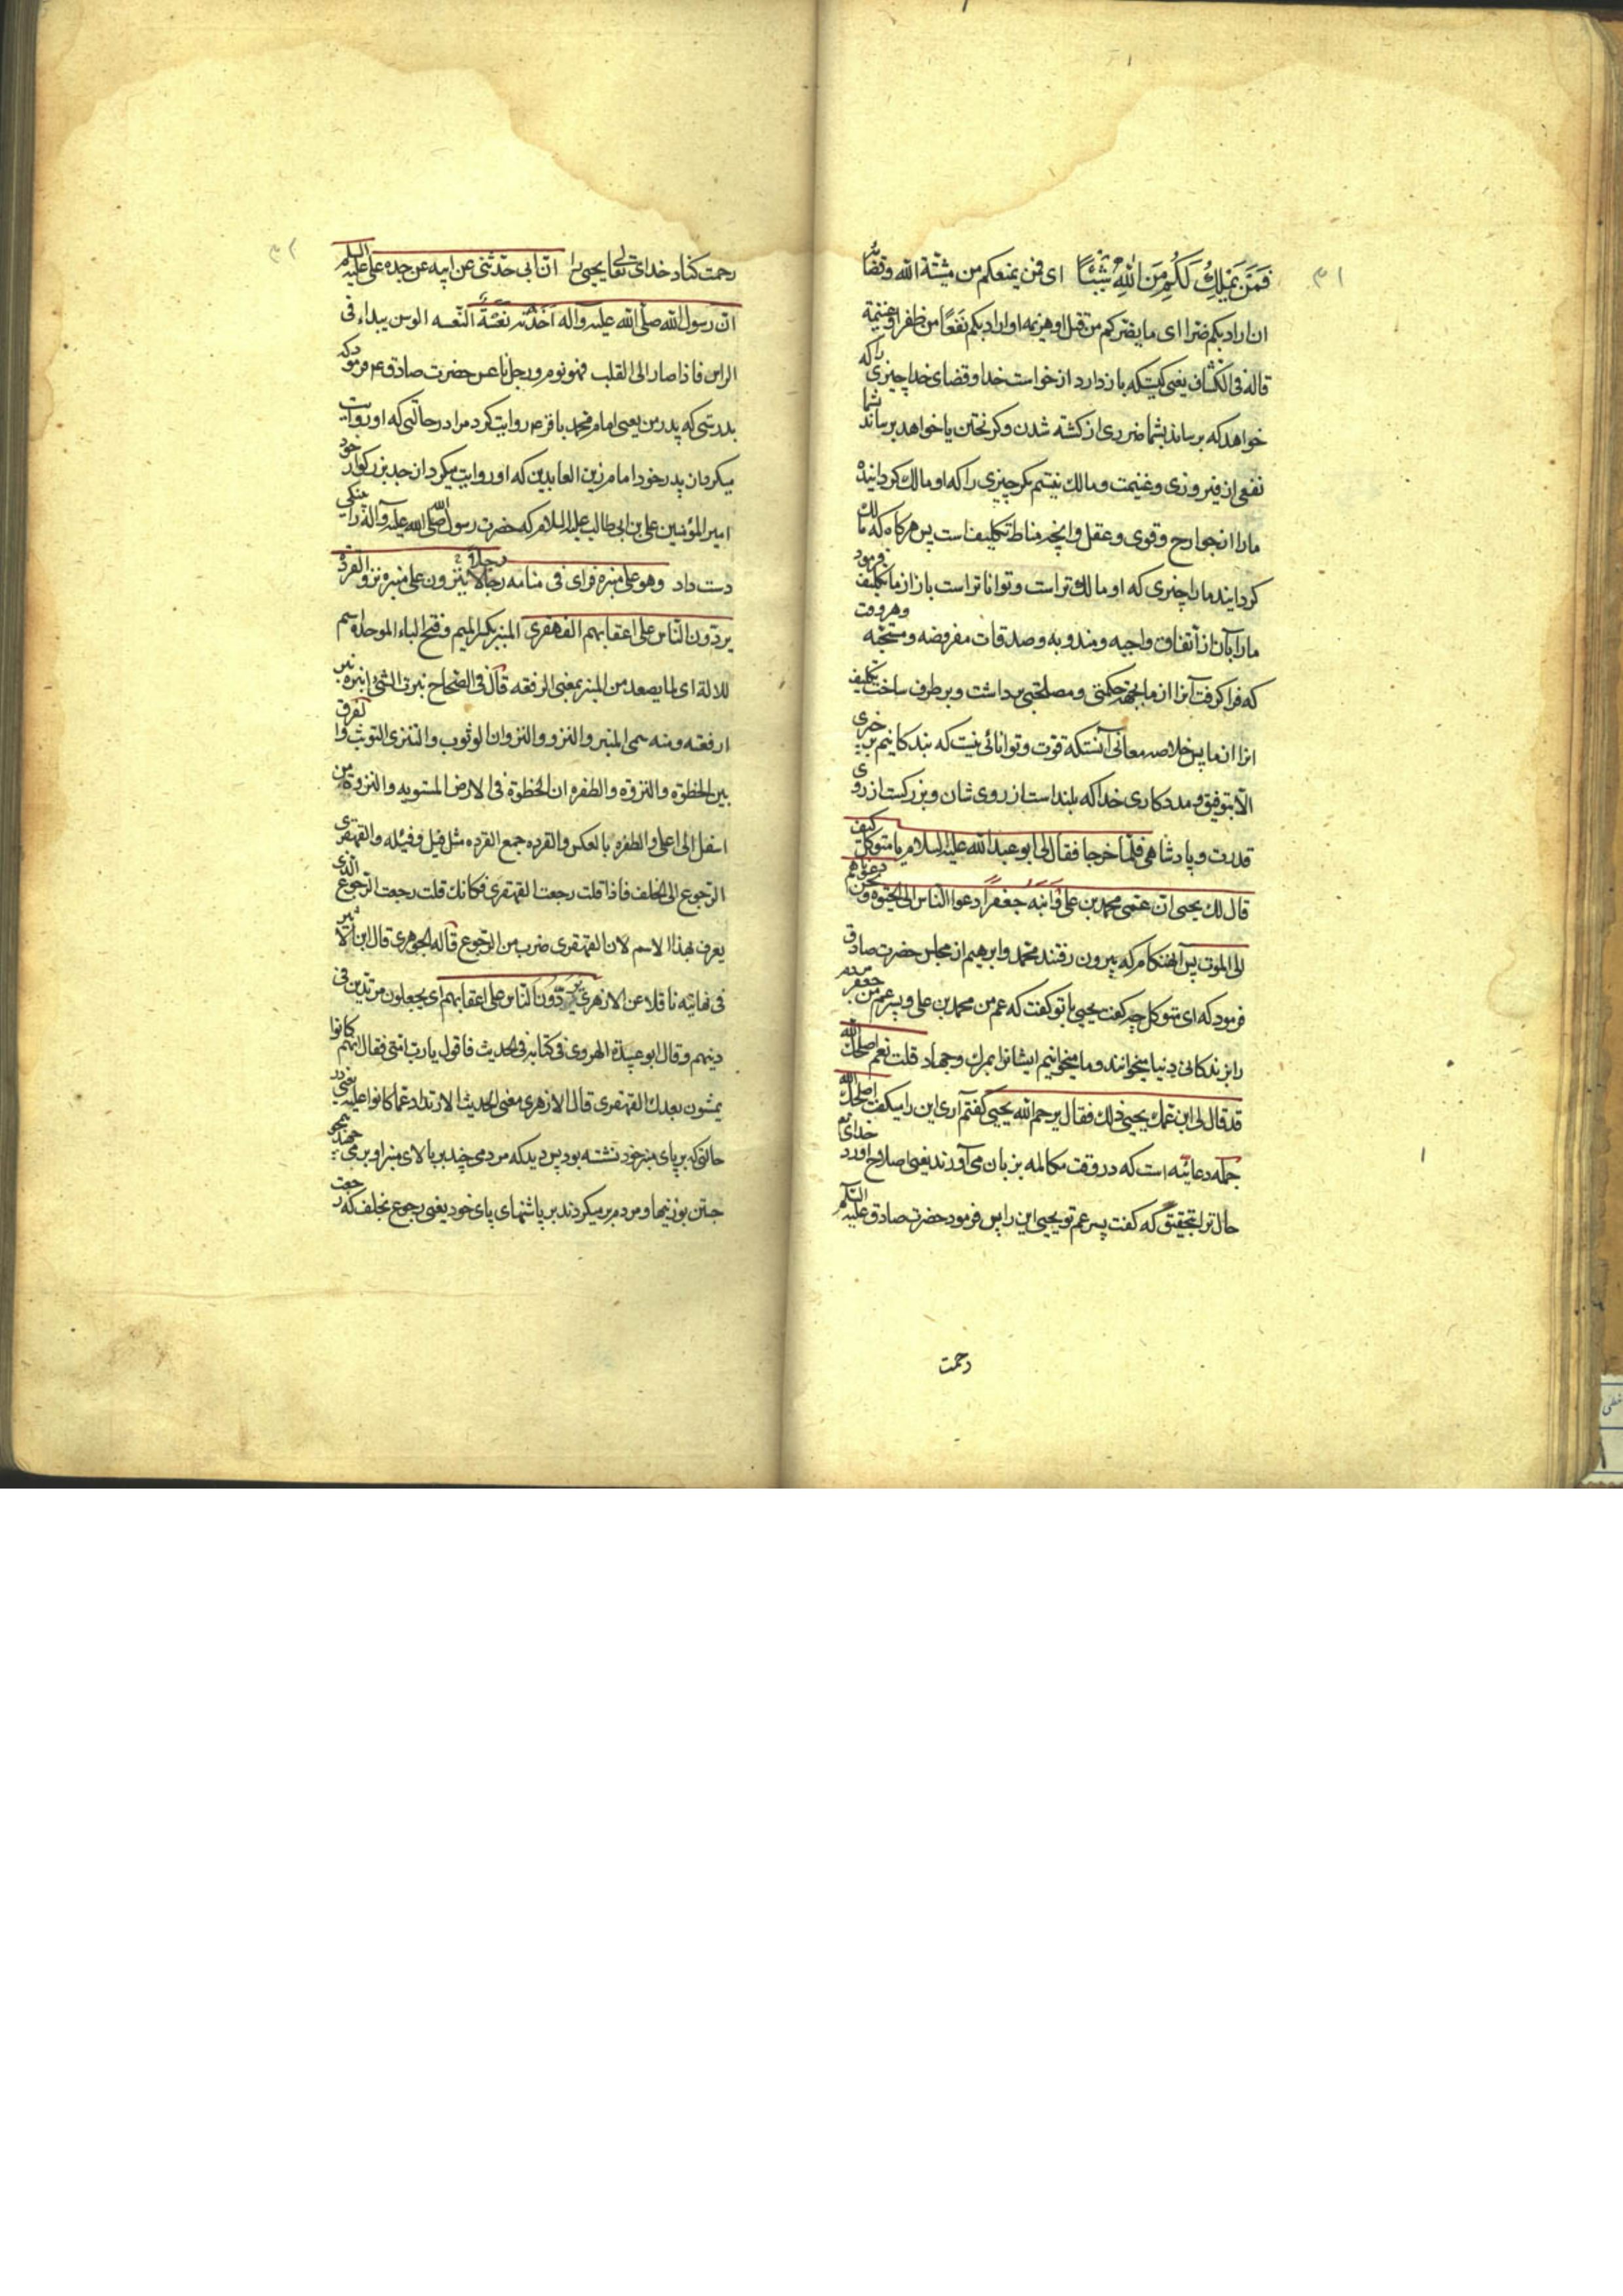 ۳۱
فَمَنْ يَمْلِكُ لَكُمْ مِنَ اللهِ شَيْئًا ای فمن یمنعکم من مشیّة الله وقضائه
ان اراد بکم ضرا ای ما یضرکم من قتل او هزیمه او اراد بکم نَفَعًا من ظفر او غنیمة
قاله فی الکشاف یعنی کیست که باز دارد از خواست خدا و قضای خدا چیزی را که
خواهد که برساند بشما ضرری از کشته شدن و کریختن یا خواهد برساند شما
نفعی از فیروزی و غنیمت و مالك نیستیم مکر چیزی را که او مالك کردانیده
مارا از جوارح و قوی و عقل و انچه مناط تکلیفاست پس هرکاه که مالك
کردانید مارا چیزی که او مالك تراست و تواناتر است باز از ما تکلیف فرمود
مارا بآن از انفاق واجبه و مندوبه و صدقات مفروضه و مستحبّه وهر وقت
که فرا کرفت آنرا از ما بجهة حکمتی و مصلحتی برداشت و برطرف ساخت تکلیف
انرا از ما پس خلاصه معانی آنستکه قوّت و توانائی نیست که بندکانیم بر چیزی
الّا بتوفیق و مددکاری خدا که بلند است از روی شان و بزرکست از روی
قدرت و پادشاهی فلمّا خرجا فقال لی ابو عبد الله علیه السلام یا متوکل کیف
قال لك یحیی ان عمّی محمد بن علی وَابنَه جَعْفَراً دعوا الناس الی الحیوه ونحن دعوناهم
الی الموت پس آنهنکام که بیرون رفتند محمد و ابرهیم از مجلس حضرت صادق
فرمود که ای متوکل چه کفت یحیی با تو کفت که عم من محمد بن علی و پسر عم من جعفر مردم
را بزندکانی دنیا میخوانند و ما میخوانیم ایشانرا بمرك و جهاد قلت نعم اصلحك الله
قد قال لی ابن عمّك یحیی ذلك فقال یرحم الله یحیی کفتم آری این را میکفت اصلحك الله
جمله دعائیّه است که در وقت مکالمه بزبان می آورند یعنی اصلاح اورد خدای تع
حال ترا بتحقیق که کفت پسر عم تو یحیی این را پس فرمود حضرت صادق علیه السّلم
رحمت
۳۲
رحمت کناد خدای تعالی یحیی را انّ ابی حدّثنی عن ابیه عن جده علی علیه السلم
انّ رسول الله صلّی الله علیه وآله اَخَذَتْه نَعْسَةٌ النّعسه الوسن یبداء فی
الراس فاذا صار الی القلب فهو نوم و رجل ناعس حضرت صادق ع فرمود که
بدرستی که پدر من یعنی امام محمد باقر ع روایت کرد مرا در حالتی که او روایت
میکرد از پدر خود امام زین العابدین که او روایت میکرد از جد بزرکوار خود
امیر المؤمنین علی بن ابی طالب علیه السلام که حضرت رسول صلی الله علیه وآله را پینکی
دست داد وهو علی منبره فرای فی منامه رجالا ینزون علی منبره نزو القردة
یردّون النّاس علی اعقابهم القهقری المنبر بکسر المیم و فتح الباء الموحده اسم
للالة ای لما یصعد من المنبر بمعنی الرفعه قال فی الصّحاح نبرت الشیٔ انبره نبر
ارفعته ومنه سمی المنبر والنزو والنزوان الوثوب والتنزی التوثب والفرق
بین الخطوة والنزوة والطفره ان الخطوة فی الارض المستویه والنزوة من
اسفل الی اعلی والطفره بالعکس والقرده جمع القرد مثل فیل و فیله والقهقری
الرّجوع الی الخلف فاذا قلت رجعت القهقری فکانك قلت رجعت الرّجوع الذی
یعرف بهذا الاسم لان القهقری ضرب من الرّجوع قاله الجوهری قال ابن الاثیر
فی نهایته ناقلا عن الازهری یردّون الناس علی اعقابهم ای یجعلون مرتدین فی
دینهم وقال ابو عبیدة الهروی فی کتابه فی الحدیث فاقول یا رب امتی فقال انهم کانوا
یمشون بعدك القهقری قال الازهری معنی الحدیث الارتداد عمّا کانوا علیه یعنی در
حالتی که بر پای منبر خود نشسته بود پس دید که مردمی چند بر بالای منبر او بر می جهند
جستن بوزینها و مردم بر میکردند بر پاشنهای پای خود یعنی رجوع بخلف که رجعت